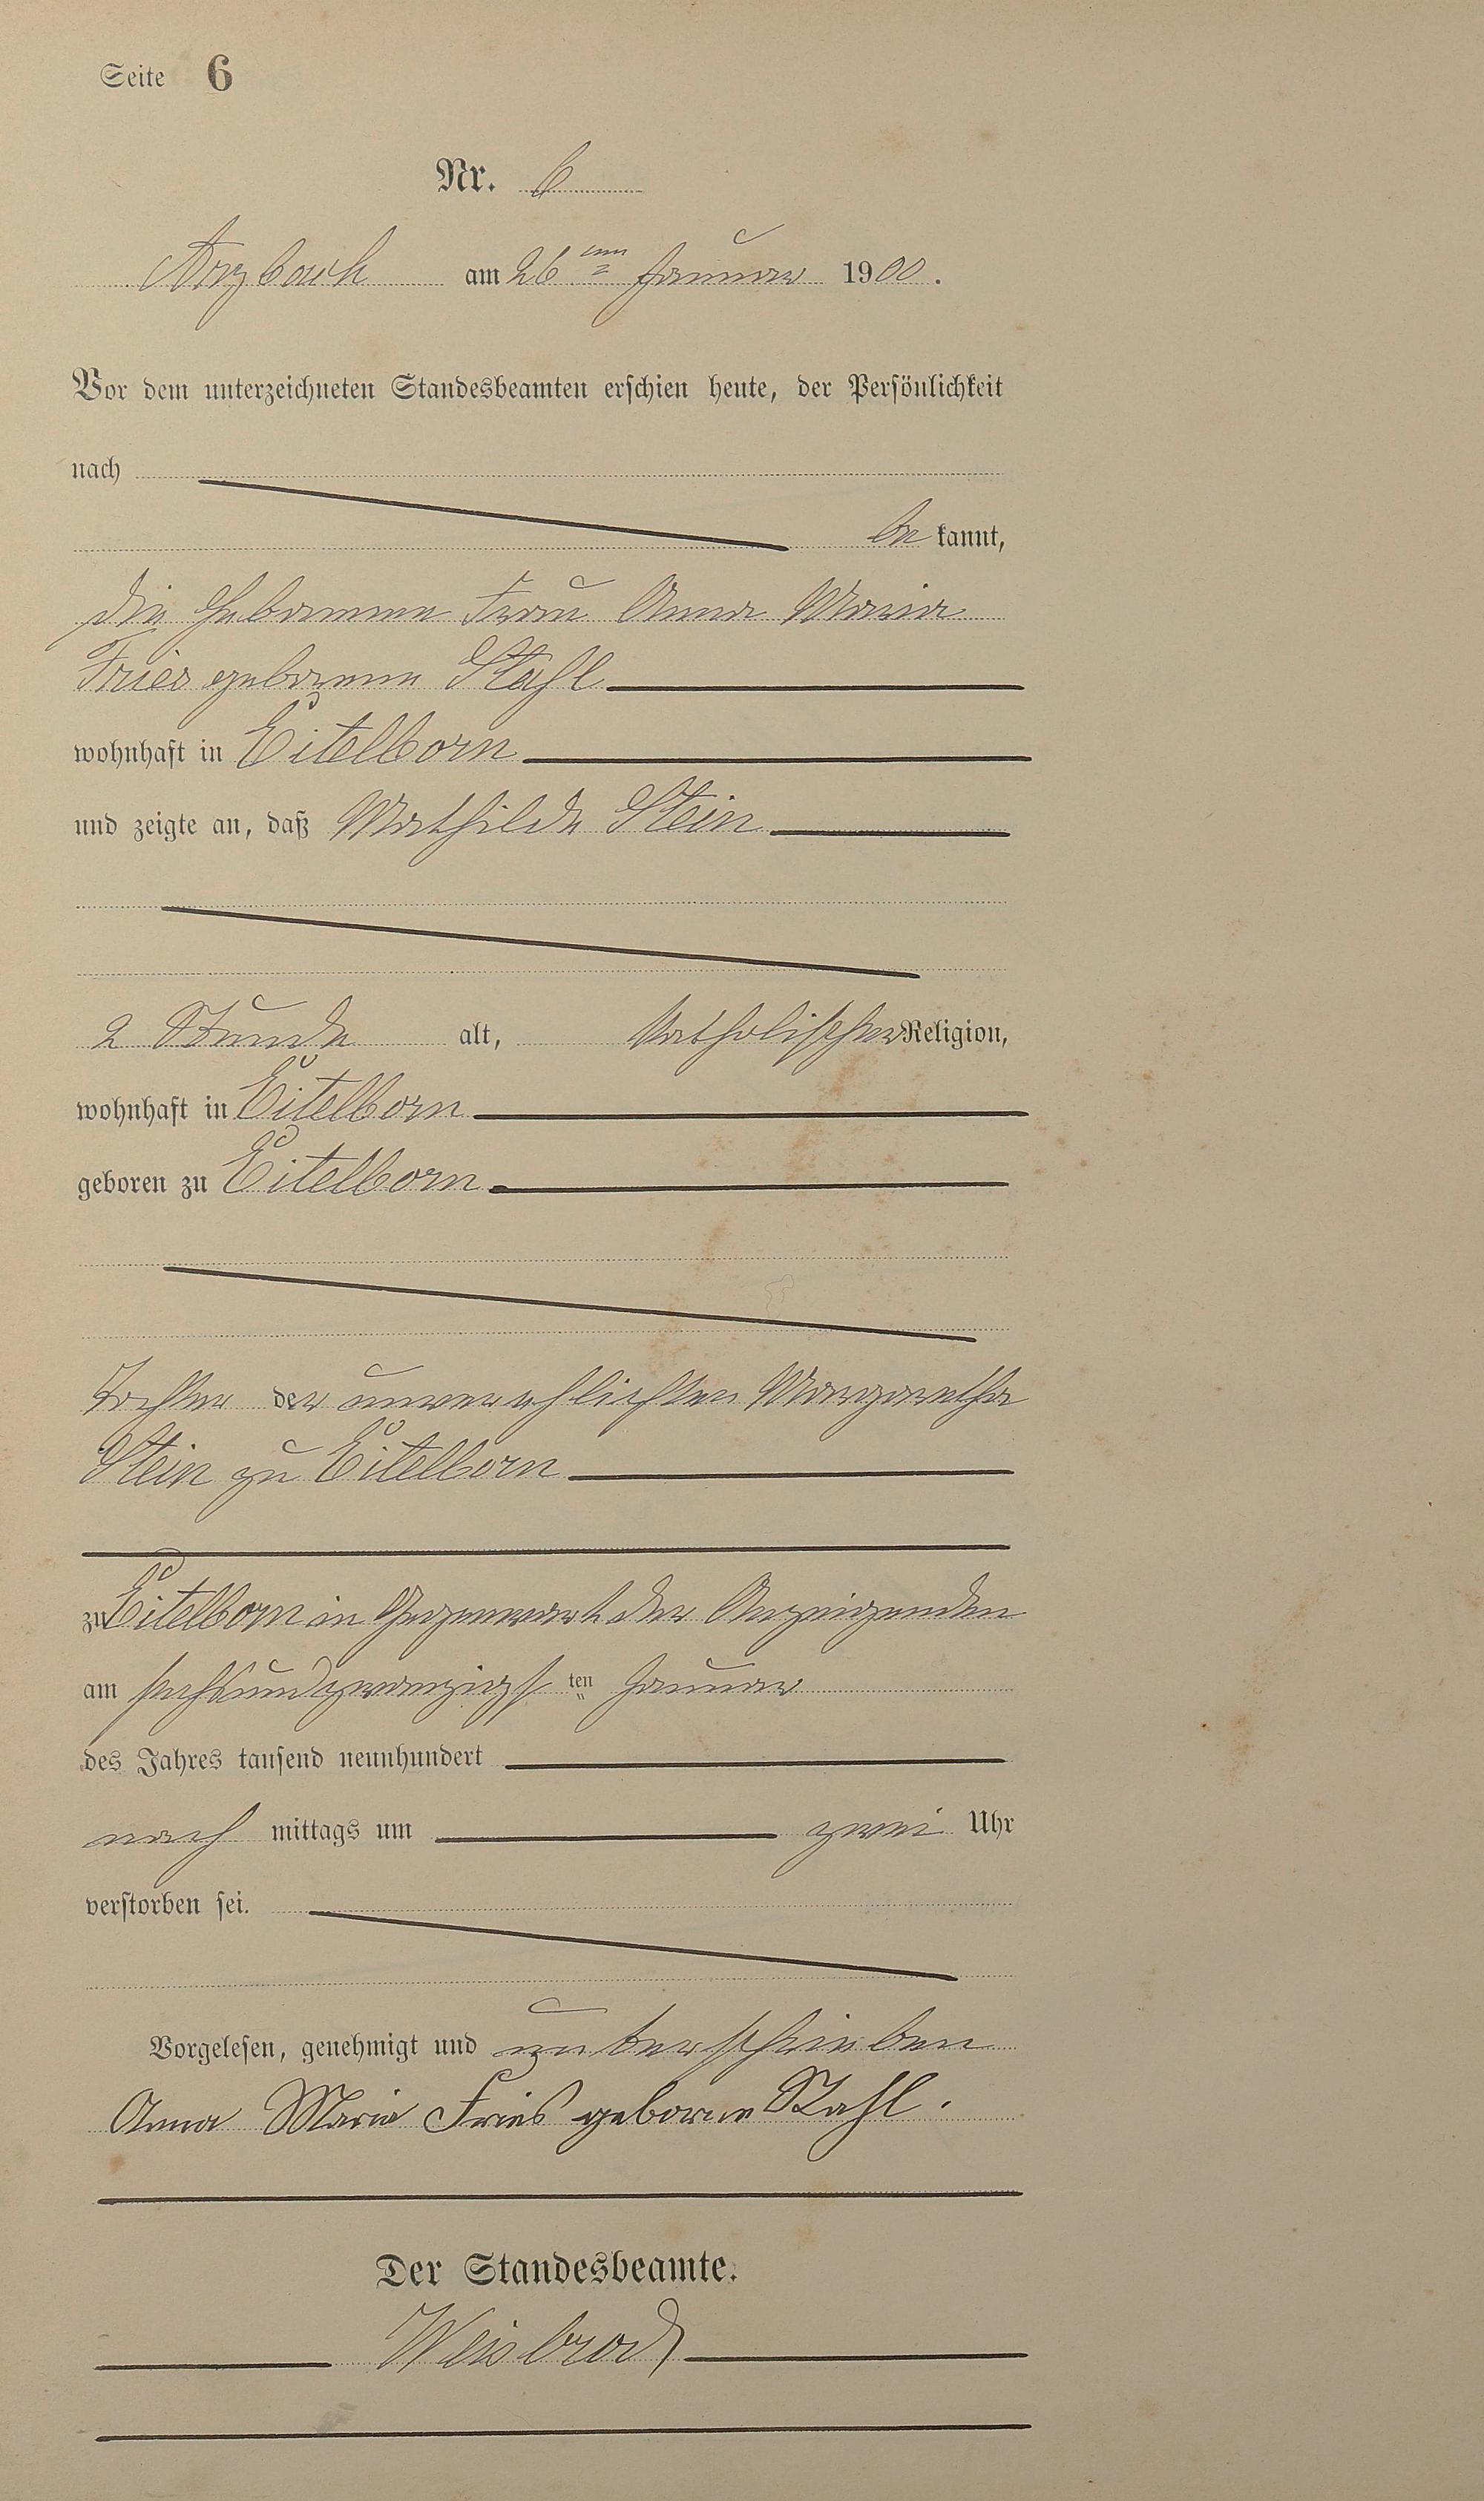 Seite 6
Nr. 6
Arzbach am 26ten Januar 1900.
Vor dem unterzeichneten Standesbeamten erschien heute, der Persönlichkeit
nach
be kannt,
die Hebamme Frau Anna Maria
Fries geborene Stahl
wohnhaft in Eitelborn
und zeigte an, daß Mathilde Stein
2 Stunde alt, katholischer Religion,
wohnhaft in Eitelborn
geboren zu Eitelborn
Tochter der unverehlichten Margaretha
Stein zu Eitelborn
zu Eitelborn in Gegenwart der Anzeigenden
am sechsundzwanzigst ten Januar
des Jahres tausend neunhundert
nach mittags um zwei Uhr
verstorben sei.
Vorgelesen, genehmigt und unterschrieben
Anna Maria Fries geborne Stahl.
Der Standesbeamte.
Weisbrod